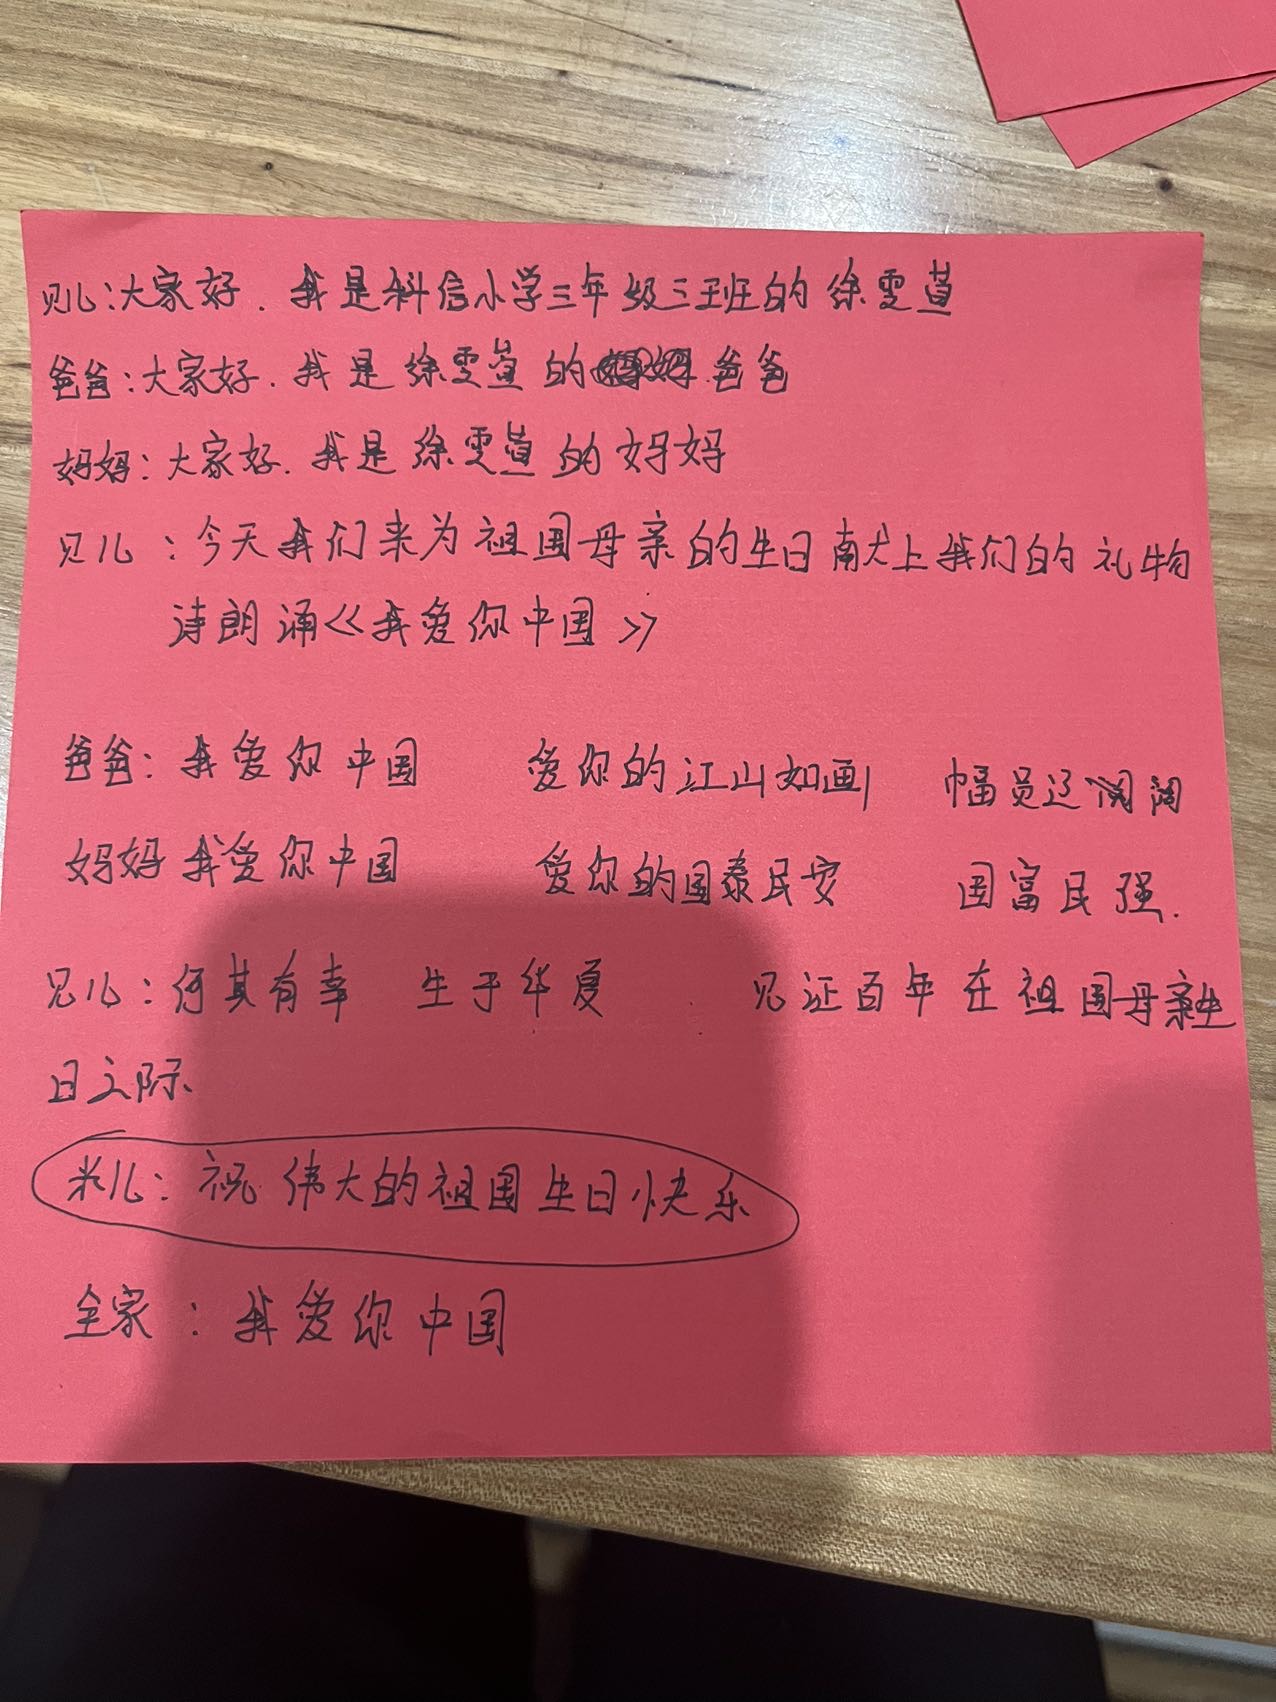 见儿:大家好.我是科信小学三年级三班的徐雯萱
爸爸:大家好.我是徐雯萱的爸爸
妈妈:大家好.我是徐雯萱的妈妈
见儿:今天我们来为祖国母亲的生日献上我们的礼物
诗朗诵《我爱你中国》
爸爸:我爱你中国 爱你的江山如画 幅员辽阔
妈妈 我爱你中国 爱你的国泰民安 国富民强.
见儿:何其有幸 生于华夏 见证百年 在祖国母亲生
日之际、
米儿:祝伟大的祖国生日快乐
全家:我爱你中国